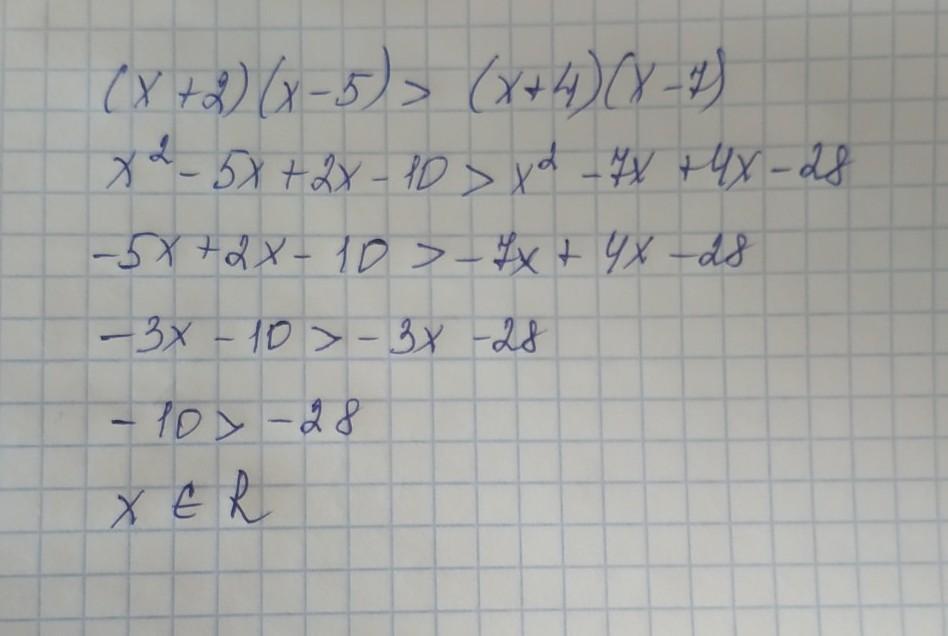 (x+2)(x-5)> (x+4)(x-7)
x²-5x+2x-10>x²-7x+4x-28
-5x+2x-10>-7x+4x-28
-3x-10>-3x-28
-10>-28
x ∈ R